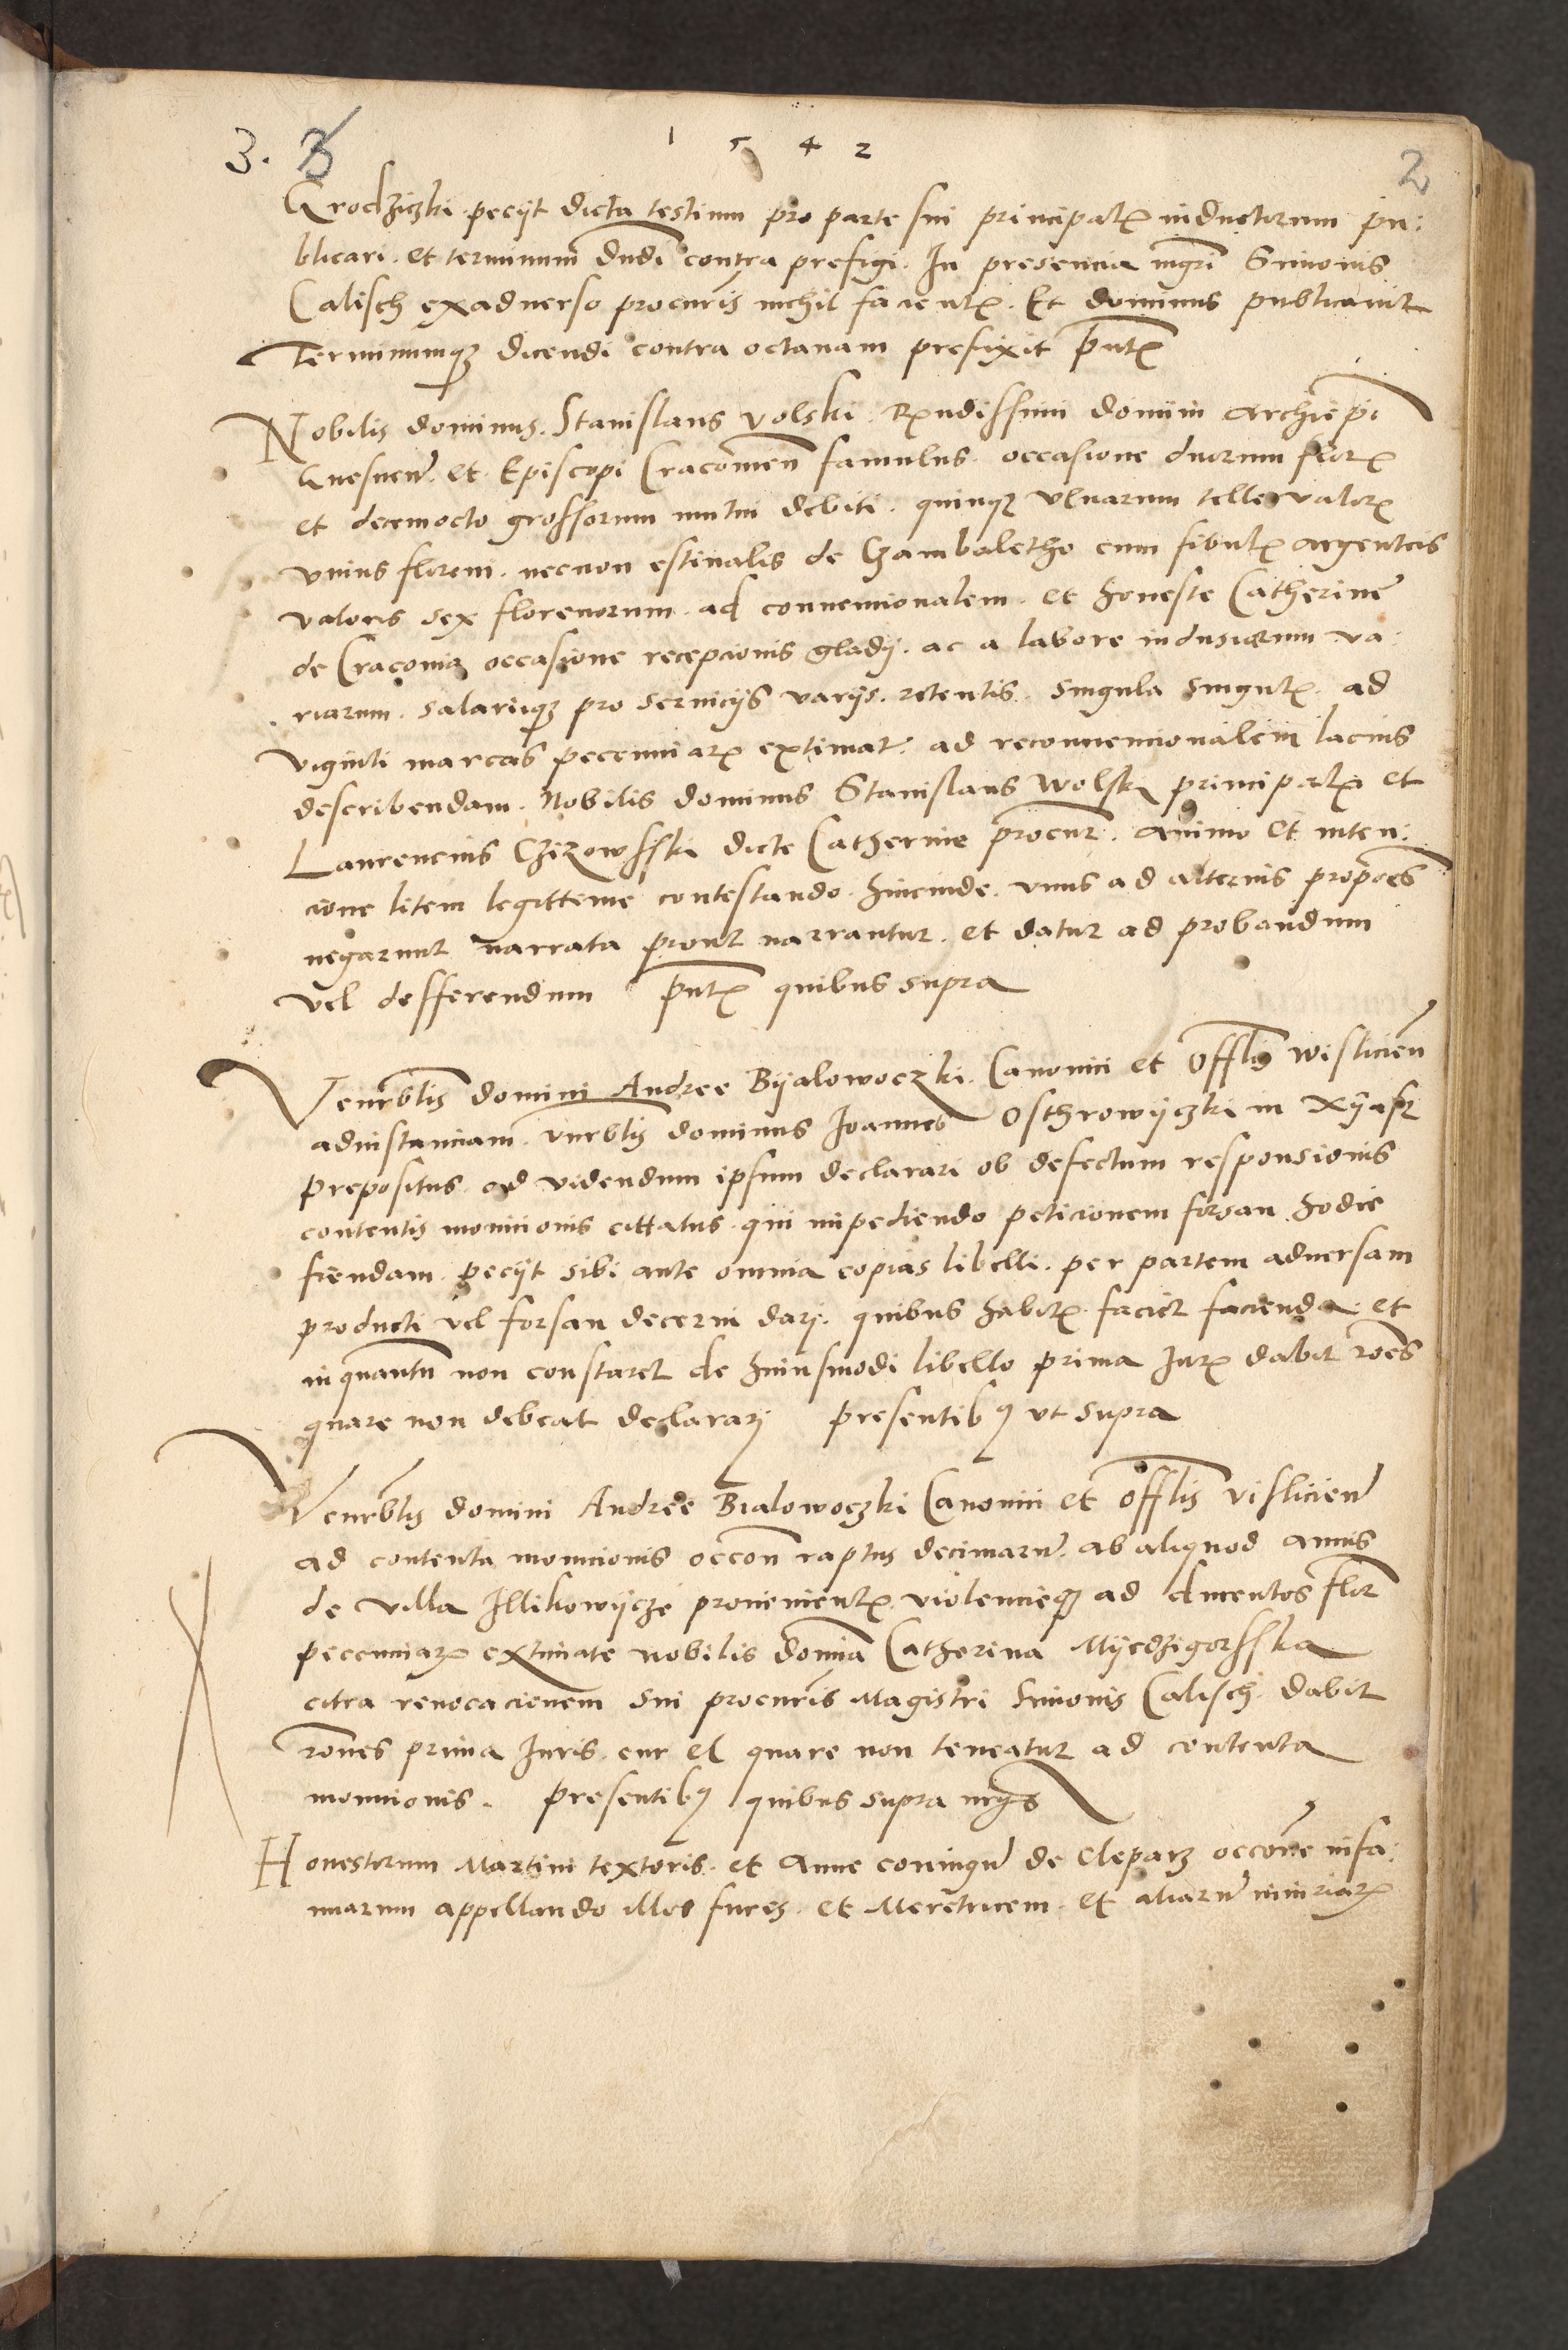 1 5 4 2
3. 3 2
Grodziczki peciit dicta testium pro parte sui principalis inductorum pu:
blicari. et terminum dicendi contra prefigi. In presencia mgri Simonis
Calisch exadverso procuris nichil facientis. Et dominus publicavit
Terminumque dicendi contra octavam prefixit pntibus
Nobilis dominus. Stanislaus Volski. Rendissimi domini Archiepi
Gnesnen et Episcopi Cracovien famulus. occasione duorum flor
et decemocto grossorum mutui debiti. quinque ulnarum telle valoris
unius floreni. necnon estivalis de Czambaletho cum fibulis argenteis
valoris sex florenorum. ad convencionalem. et honeste Catherine
de Cracovia occasione recepcionis gladij. ac a labore indusiorum va:
riarum. salariique pro serviciis varijs. retentis. singula singulis ad
viginti marcas pecuniarum extimat. ad reconvencionalem lacius
describendam. Nobilis dominus Stanislaus Wolski principalis et
Laurencius Czizowsski dicte Catherine procur. animo et inten:
cione litem legitteme contestando hincinde. unus ad alterius propoes
negarunt narrata prout narrantur. et datur ad probandum
vel defferendum pntibus quibus supra
Venerblis domini Andree Byalowoczki. Canonici et Offlis wislicien
adinstanciam. vnrblis dominus Joannes Osthrowyczki in Xyasz
prepositus ad videndum ipsum declarari ob defectum responsionis
contentis monicionis cittatus. qui impediendo peticionem forsan hodie
fiendam. peciit sibi ante omnia copias libelli. per partem adversam
producti vel forsan decerni dari. quibus habitis faciet facienda. et
inquantum non constaret de huiusmodi libello prima Juris dabit roes
quare non debeat declarari presentibus ut supra
Venerblis domini Andree Bialowoczki Canonici et offlis vislicien
ad contenta monicionis occon raptus decimarum. ab aliquod annis
de villa Illikowycze provenientis violencieque ad ducentos flor
pecuniarum extimate nobilis domina Catherina Myedzigorsska
citra revocacionem sui procuris Magistri Simonis Calisch. dabit
rones prima Juris. cur el quare non teneatur ad contenta
monicionis. presentibus quibus supra mgris
Honestorum Martini textoris. et Anne coniugum de Cleparz occone infa:
miarum appellando illos fures. et Meretricem. et aliarum iniuriarum